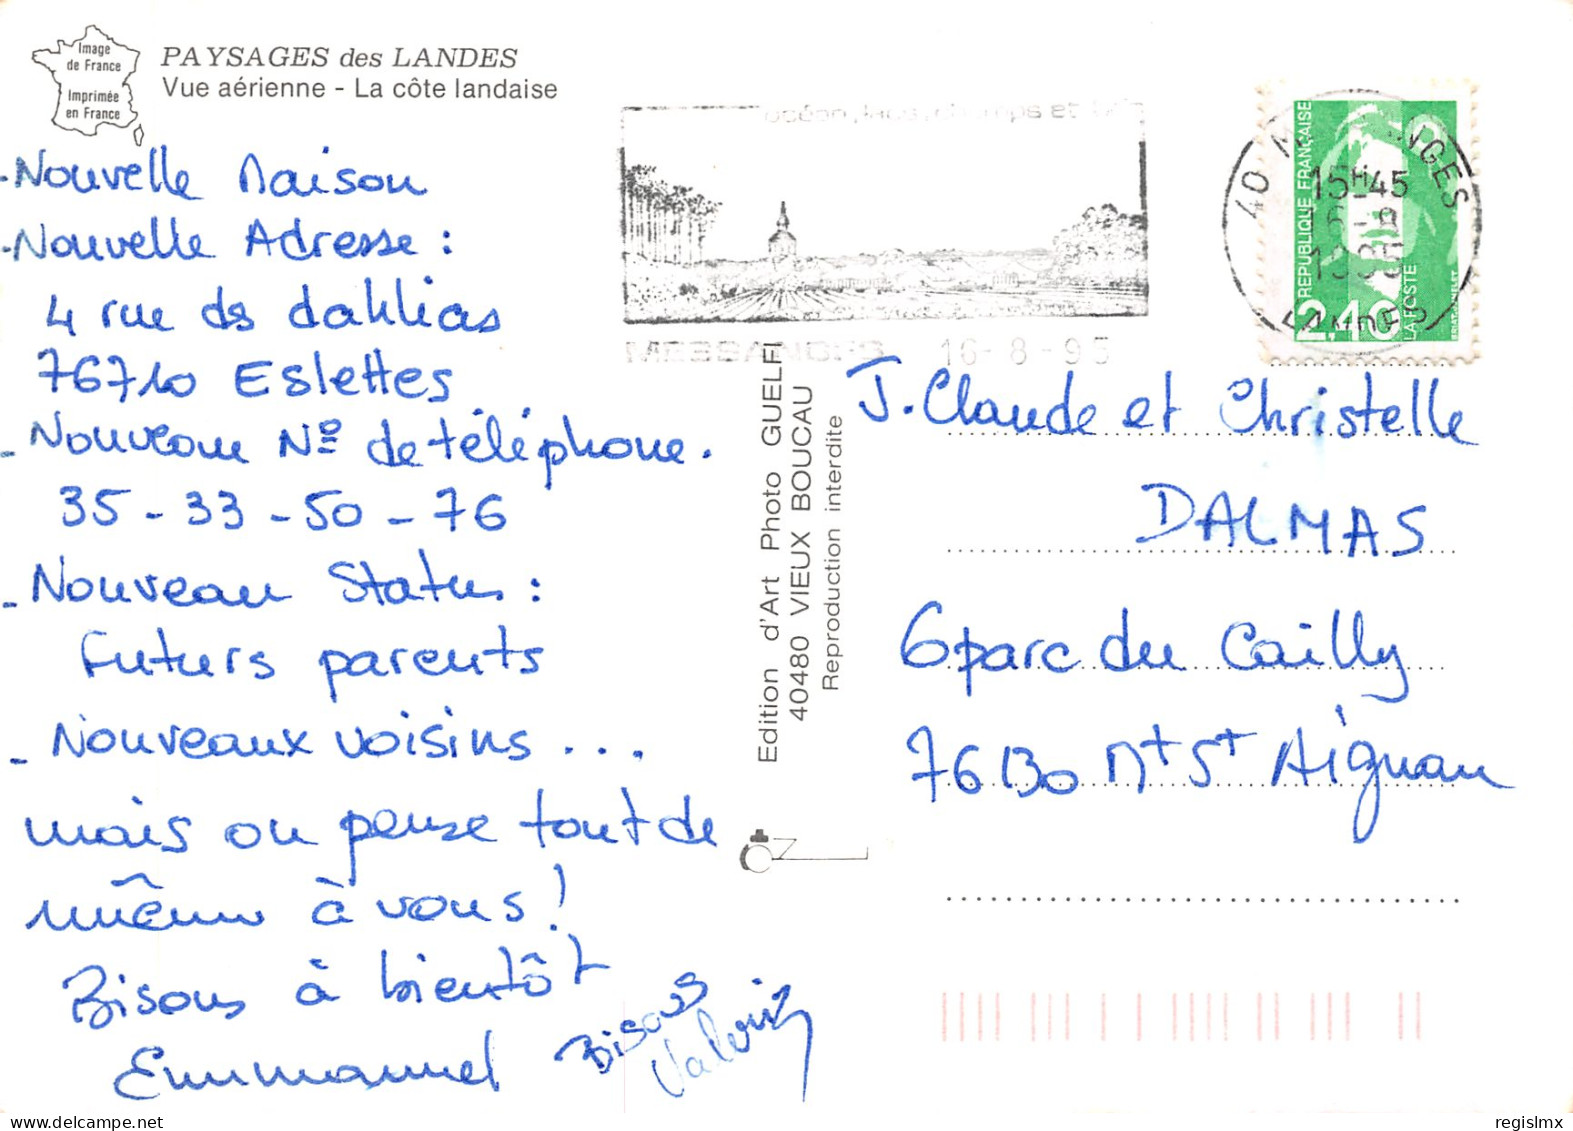 Image
de France
Imprimée
en France
PAYSAGES des LANDES
Vue aérienne - La côte landaise
- Nouvelle Maison
- Nouvelle Adresse :
4 rue ds dahlias
76710 Eslettes
- Nouveau Nº de téléphone.
35-33-50-76
- Nouveau Status :
Futurs parents
- Nouveaux voisins ...
mais on pense tout de
même à vous !
Bisous à bientôt
Emmanuel
Bisous
Edition d'Art Photo GUELFI
40480 VIEUX BOUCAU
Reproduction interdite
MESSANGES 16-8-95
40 MESSANGES
15H45
LANDES
REPUBLIQUE FRANÇAISE
2,40
LA POSTE
J.Claude et Christelle
DALMAS
6 parc du Cailly
76130 Mt St Aignan
regislmx